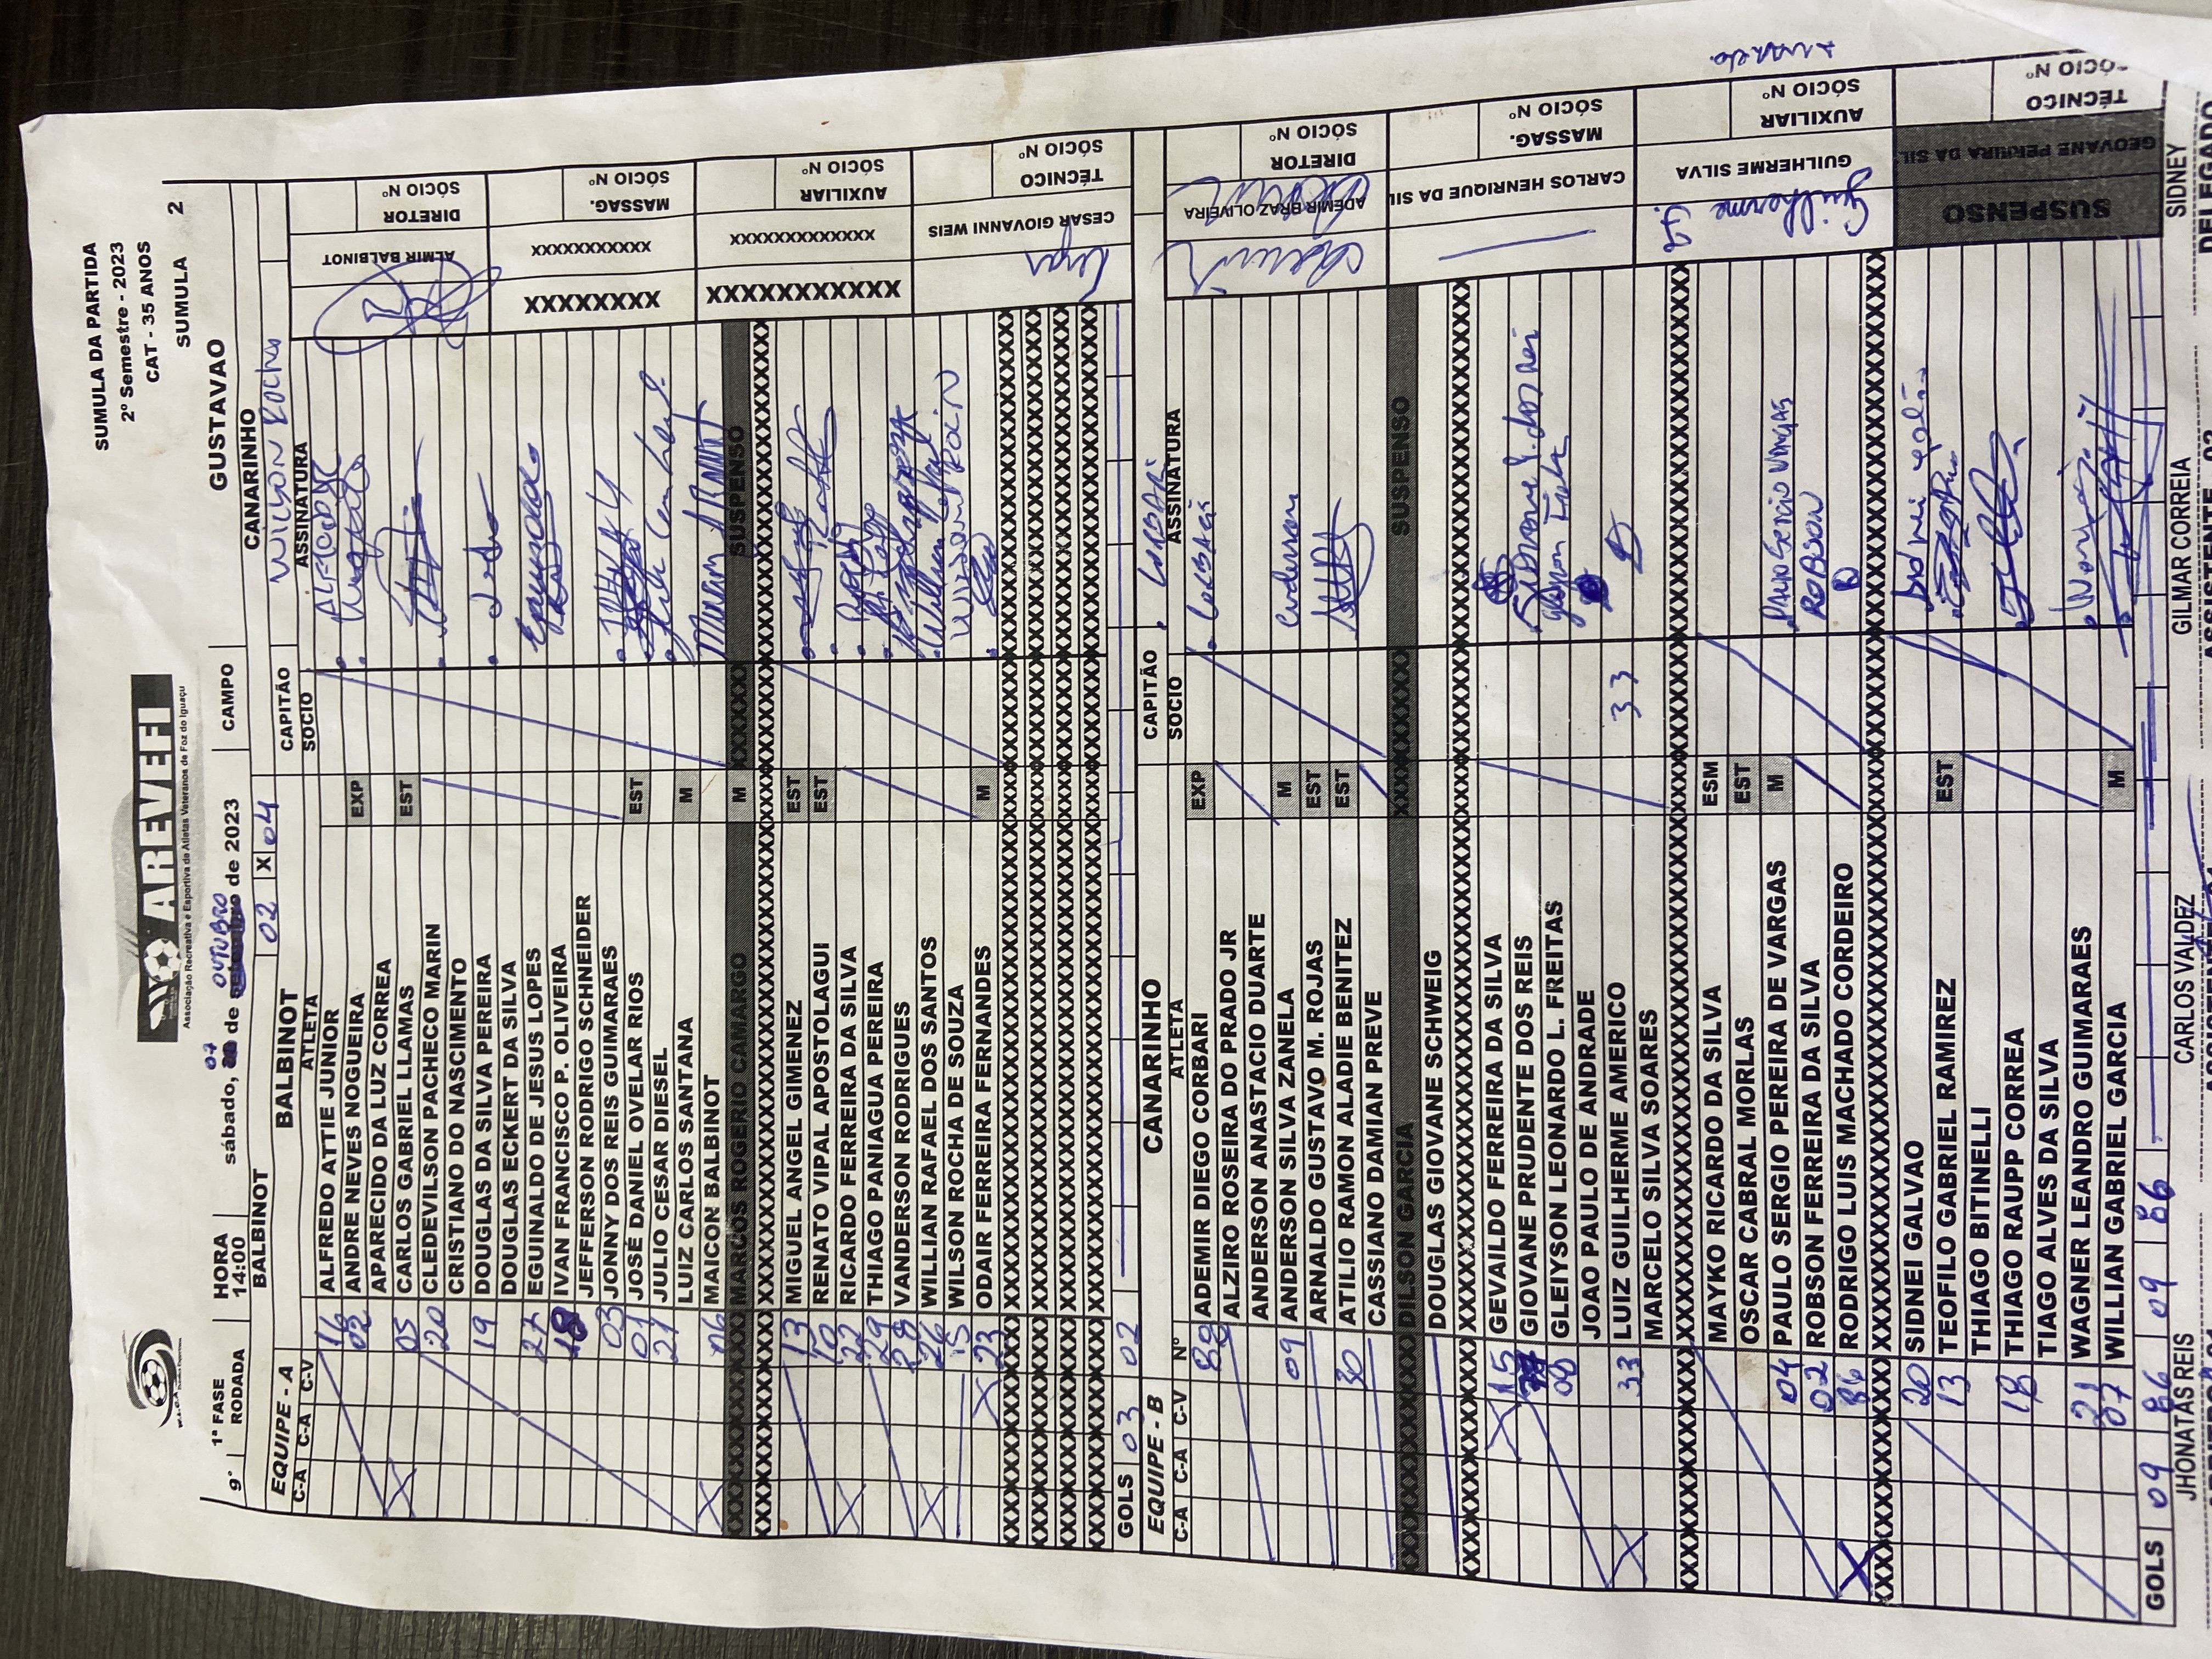 SUMULA DA PARTIDA
2º Semestre - 2023
CAT - 35 ANOS
SUMULA 2
AREVEFI
Associação Recreativa e Esportiva de Atletas Veteranos de Foz do Iguaçu
9ª 1ª FASE RODADA
HORA 14:00
sábado, 07 de OUTUBRO de 2023
CAMPO GUSTAVAO
BALBINOT 02 X 04 CANARINHO
EQUIPE - A BALBINOT CAPITÃO WILSON ROCHA
C-A C-A C-V ATLETA SOCIO ASSINATURA
16 ALFREDO ATTIE JUNIOR
02 ANDRE NEVES NOGUEIRA EXP
APARECIDO DA LUZ CORREA
05 CARLOS GABRIEL LLAMAS EST
20 CLEDEVILSON PACHECO MARIN
CRISTIANO DO NASCIMENTO
19 DOUGLAS DA SILVA PEREIRA
DOUGLAS ECKERT DA SILVA
27 EGUINALDO DE JESUS LOPES
18 IVAN FRANCISCO P. OLIVEIRA
JEFFERSON RODRIGO SCHNEIDER
03 JONNY DOS REIS GUIMARAES
01 JOSÉ DANIEL OVELAR RIOS EST
21 JULIO CESAR DIESEL
LUIZ CARLOS SANTANA M
06 MAICON BALBINOT
XXXXXXXX MARCOS ROGERIO CAMARGO M XXXXXX SUSPENSO
13 MIGUEL ANGEL GIMENEZ EST
10 RENATO VIPAL APOSTOLAGUI EST
22 RICARDO FERREIRA DA SILVA
29 THIAGO PANIAGUA PEREIRA
28 VANDERSON RODRIGUES
26 WILLIAN RAFAEL DOS SANTOS
15 WILSON ROCHA DE SOUZA
X 23 ODAIR FERREIRA FERNANDES M
GOLS 03 02
ALMIR BALBINOT
DIRETOR
SÓCIO Nº
XXXXXXXX
XXXXXXXXXXX
MASSAG.
SÓCIO Nº
XXXXXXXXXXX
XXXXXXXXXXXXX
AUXILIAR
SÓCIO Nº
Cezar
CESAR GIOVANNI WEIS
TÉCNICO
SÓCIO Nº
EQUIPE - B CANARINHO CAPITÃO CORBARI
C-A C-A C-V Nº ATLETA SOCIO ASSINATURA
88 ADEMIR DIEGO CORBARI EXP
ALZIRO ROSEIRA DO PRADO JR
ANDERSON ANASTACIO DUARTE
09 ANDERSON SILVA ZANELA M Anderson
ARNALDO GUSTAVO M. ROJAS EST
30 ATILIO RAMON ALADIE BENITEZ EST
CASSIANO DAMIAN PREVE
DILSON GARCIA SUSPENSO
DOUGLAS GIOVANE SCHWEIG
X 15 GEVAILDO FERREIRA DA SILVA
GIOVANE PRUDENTE DOS REIS Giovane P. dos Reis
00 GLEIYSON LEONARDO L. FREITAS
JOAO PAULO DE ANDRADE
X 33 LUIZ GUILHERME AMERICO 33
MARCELO SILVA SOARES
MAYKO RICARDO DA SILVA ESM
OSCAR CABRAL MORLAS EST
04 PAULO SERGIO PEREIRA DE VARGAS M Paulo Sergio Vargas
02 ROBSON FERREIRA DA SILVA ROBSON
X 86 RODRIGO LUIS MACHADO CORDEIRO
20 SIDNEI GALVAO Sidnei Galvão
13 TEOFILO GABRIEL RAMIREZ EST
THIAGO BITINELLI
18 THIAGO RAUPP CORREA
TIAGO ALVES DA SILVA
21 WAGNER LEANDRO GUIMARAES
07 WILLIAN GABRIEL GARCIA M
GOLS 09 86 09 86
Ademir
ADEMIR BRAZ OLIVEIRA
DIRETOR
SÓCIO Nº
CARLOS HENRIQUE DA SIL
MASSAG.
SÓCIO Nº
Guilherme S.
GUILHERME SILVA
AUXILIAR
SÓCIO Nº
SUSPENSO
GEOVANE PEREIRA DA SIL
TÉCNICO
SÓCIO Nº
JHONATAS REIS CARLOS VALDEZ GILMAR CORREIA SIDNEY
ASSISTENTE 02 DELEGADO